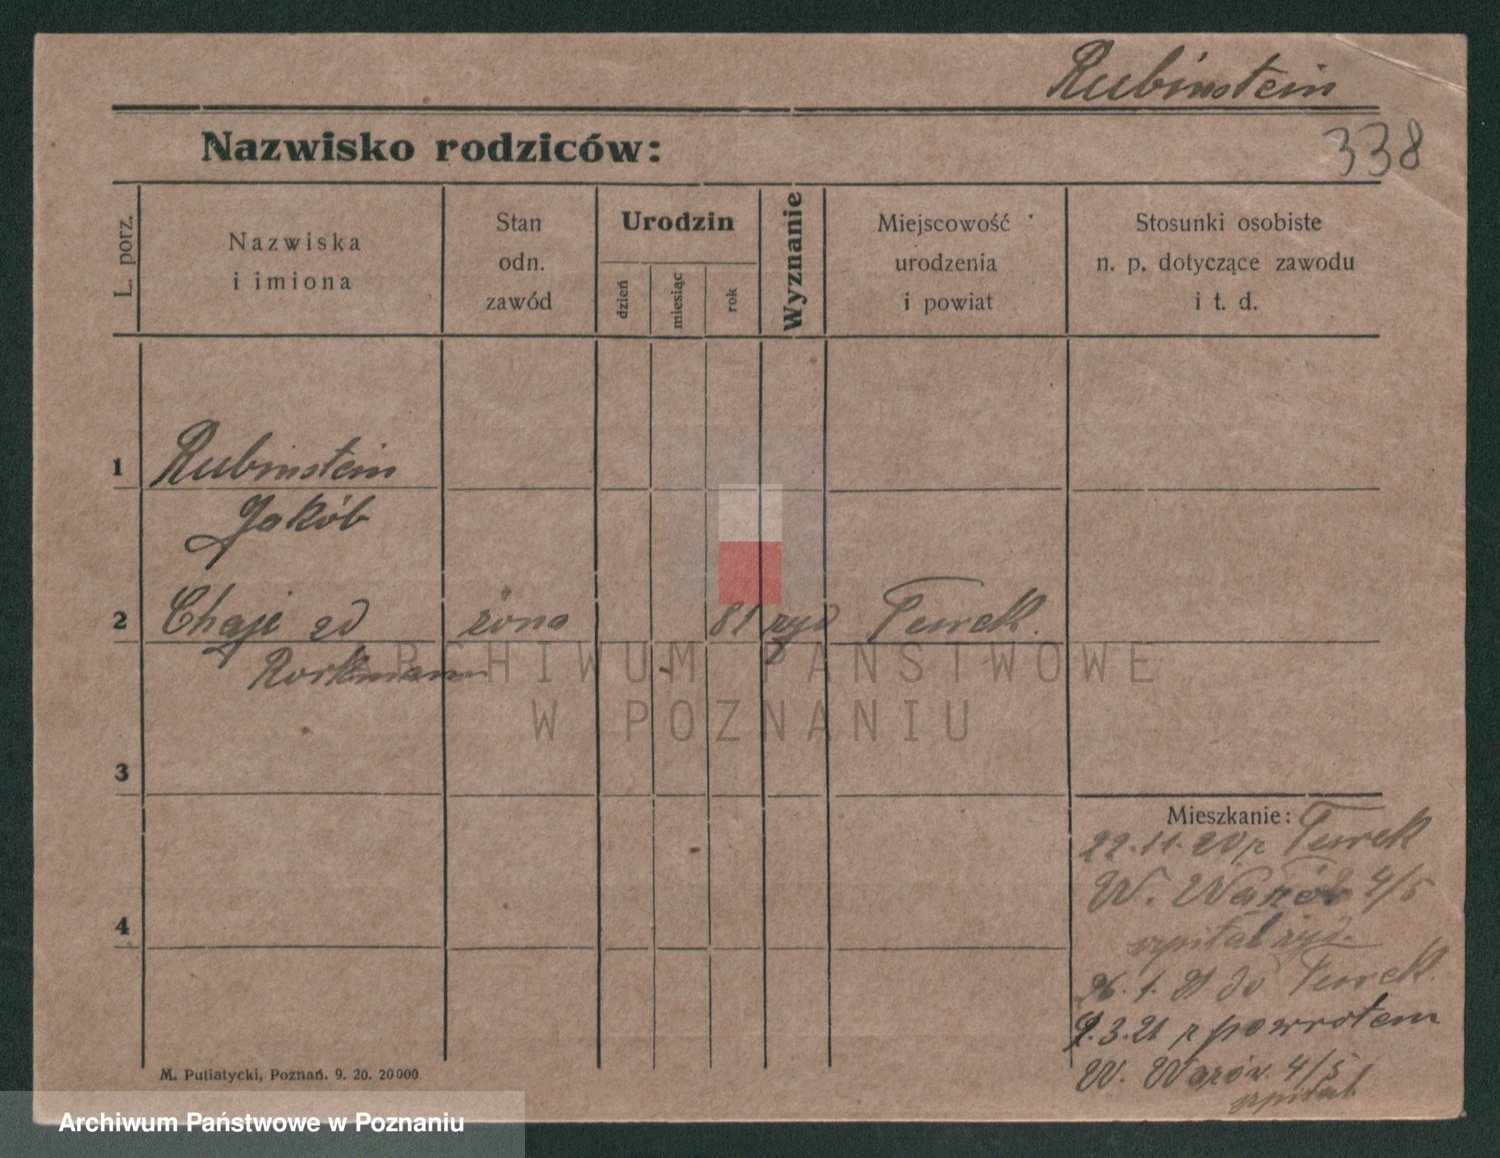 Rubinstein
Nazwisko rodziców:
338
L. porz.
Nazwiska
i imiona
Stan
odn.
zawód
Urodzin
dzień
miesiąc
rok
Wyznanie
Miejscowość
urodzenia
i powiat
Stosunki osobiste
n. p. dotyczące zawodu
i t. d.
1 Rubinstein
Jakób
2 Chaje zd żona 81 żyd Turek.
ARCHIWUM PAŃSTWOWE
W POZNANIU
3
Mieszkanie:
22.11.20 z Turek
W. 4/5
4
szpital żyd.
26.1.21 do Turek.
9.3.21 z powrotem
W. 4/5
szpital
M. Putiatycki, Poznań. 9. 20. 20000
Archiwum Państwowe w Poznaniu